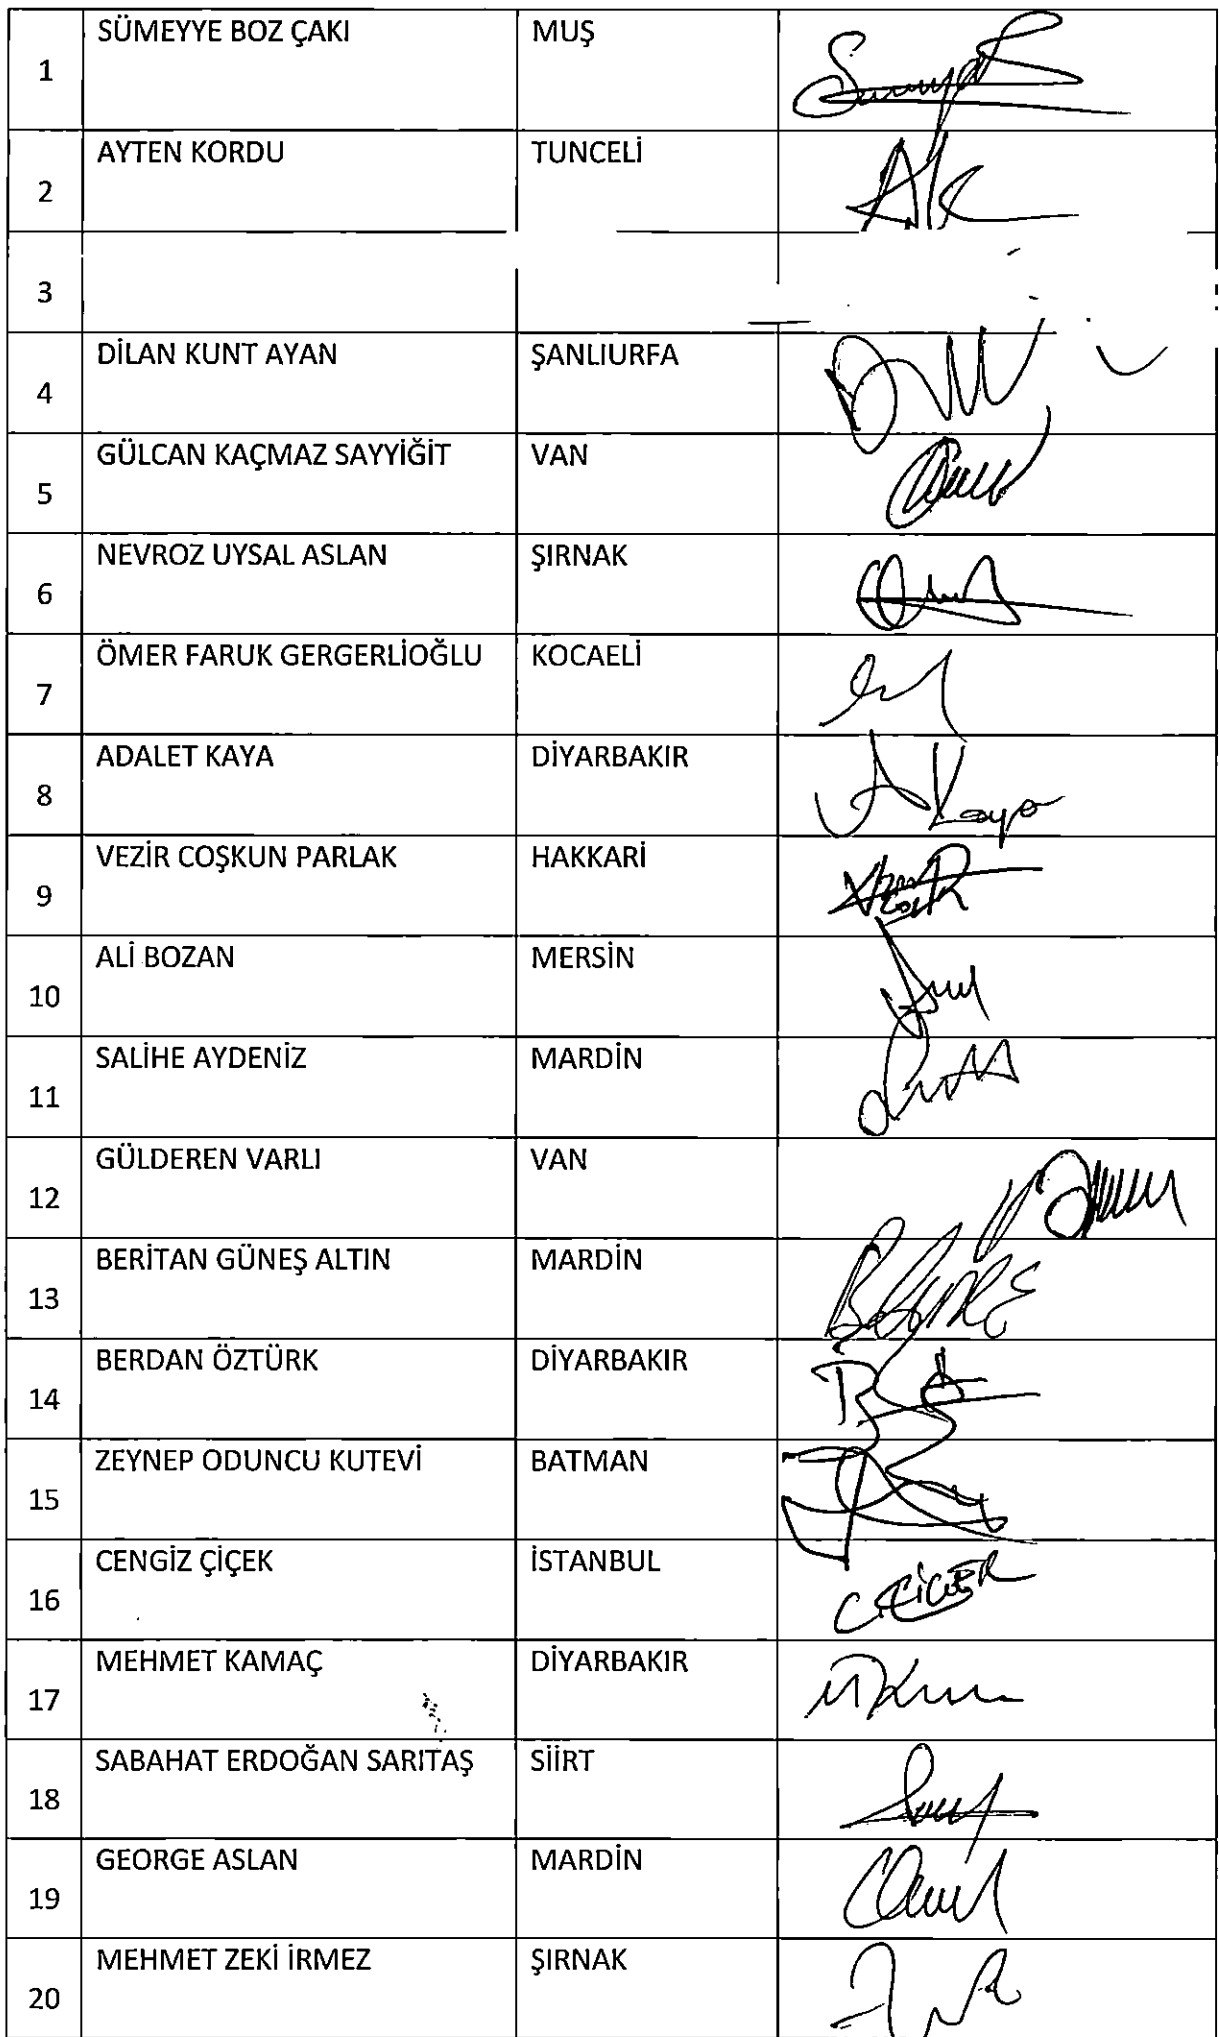 1 SÜMEYYE BOZ ÇAKI MUŞ
2 AYTEN KORDU TUNCELİ AK
3
4 DİLAN KUNT AYAN ŞANLIURFA
5 GÜLCAN KAÇMAZ SAYYİĞİT VAN
6 NEVROZ UYSAL ASLAN ŞIRNAK
7 ÖMER FARUK GERGERLİOĞLU KOCAELİ
8 ADALET KAYA DİYARBAKIR A Kaya
9 VEZİR COŞKUN PARLAK HAKKARİ
10 ALİ BOZAN MERSİN
11 SALİHE AYDENİZ MARDİN
12 GÜLDEREN VARLI VAN
13 BERİTAN GÜNEŞ ALTIN MARDİN
14 BERDAN ÖZTÜRK DİYARBAKIR
15 ZEYNEP ODUNCU KUTEVİ BATMAN
16 CENGİZ ÇİÇEK İSTANBUL
17 MEHMET KAMAÇ DİYARBAKIR
18 SABAHAT ERDOĞAN SARITAŞ SİİRT
19 GEORGE ASLAN MARDİN
20 MEHMET ZEKİ İRMEZ ŞIRNAK